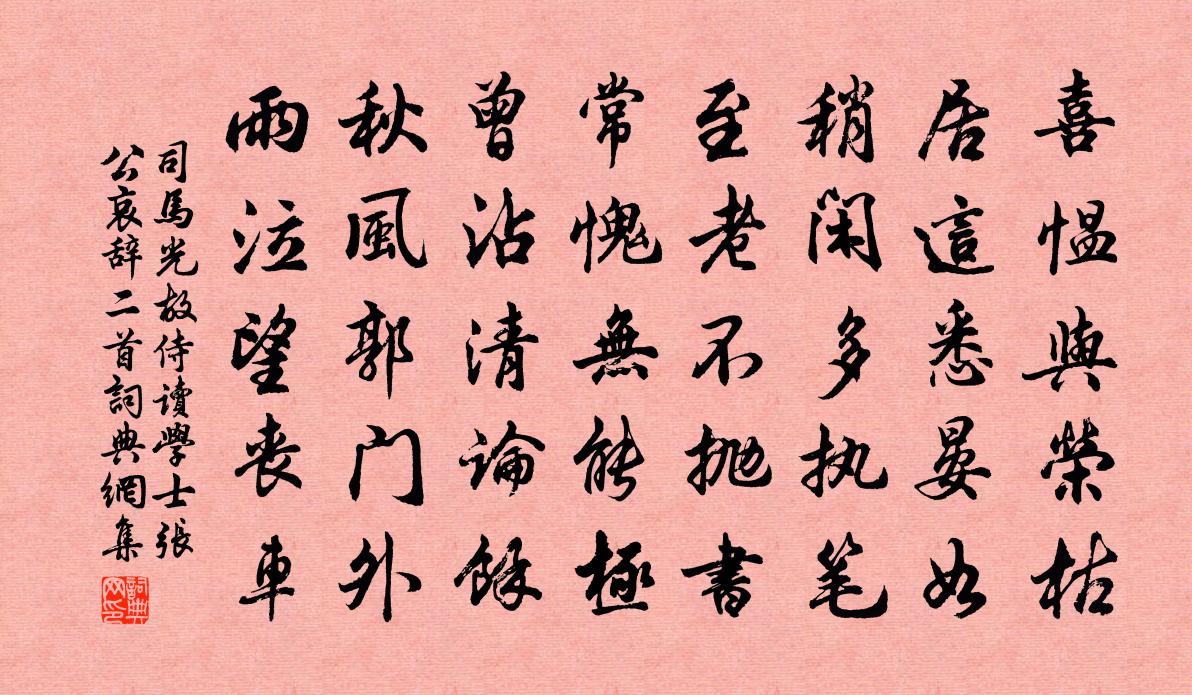 喜愠與榮枯
居這悉晏如
稍閑多执笔
至老不抛書
常愧無能極
曾沾清論餘
秋風郭门外
雨泣望丧車
司馬光故侍讀學士張
公哀辞二首詞典網集
詞典網印